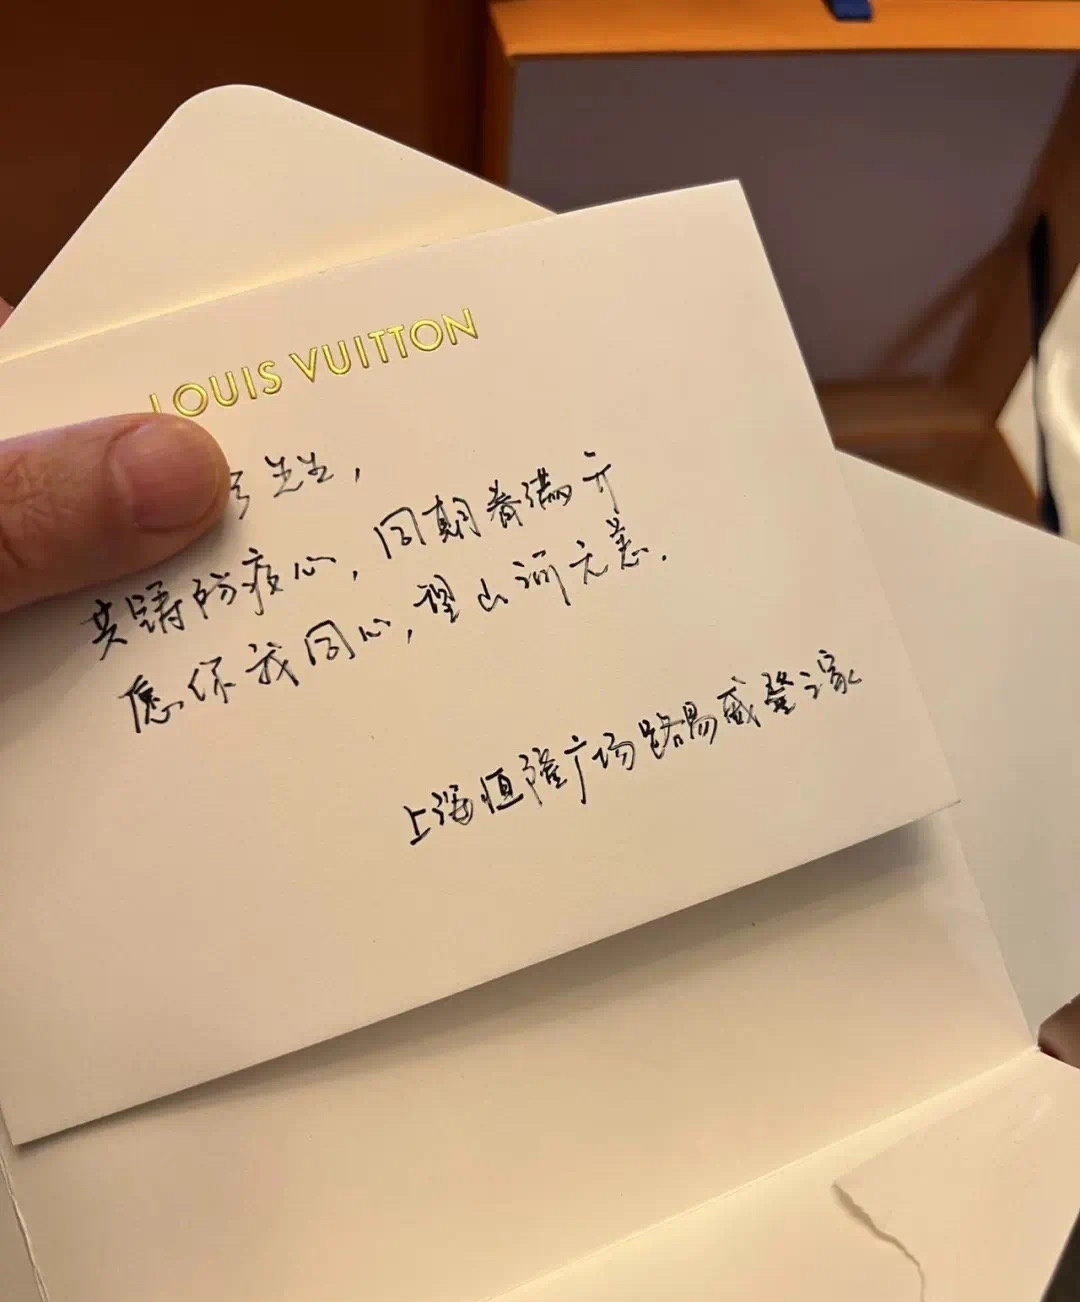 LOUIS VUITTON
先生，
共铸防疫心，同期春满开
愿你我同心，望山河无恙．
上海恒隆广场路易威登之家